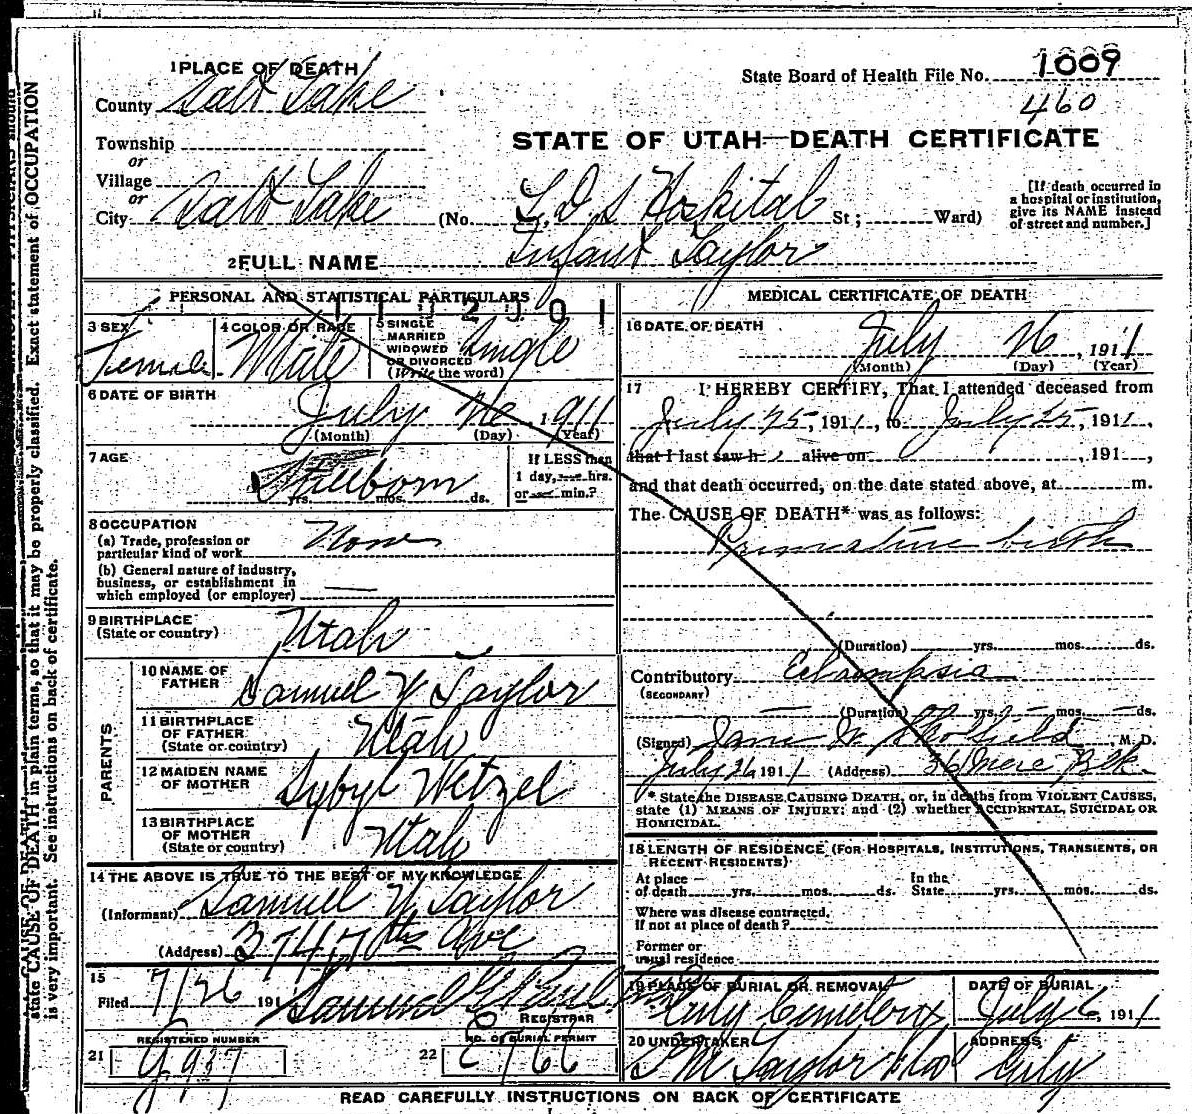 1 PLACE OF DEATH
County Salt Lake
State Board of Health File No. 1009
460
Township
or
Village
or
STATE OF UTAH—DEATH CERTIFICATE
City Salt Lake (No. L.D.S Hospital St; Ward)
[If death occurred in
a hospital or institution,
give its NAME instead
of street and number.]
2 FULL NAME Infant Taylor
PERSONAL AND STATISTICAL PARTICULARS
3 SEX
Female
4 COLOR OR RACE
White
5 SINGLE
MARRIED
WIDOWED
OR DIVORCED
(Write the word)
Single
6 DATE OF BIRTH
July 26, 1911
(Month) (Day) (Year)
7 AGE
Stillborn
yrs. mos. ds.
If LESS than
1 day, hrs.
or min.?
8 OCCUPATION
(a) Trade, profession or
particular kind of work None
(b) General nature of industry,
business, or establishment in
which employed (or employer)
9 BIRTHPLACE
(State or country) Utah
PARENTS
10 NAME OF
FATHER Samuel W Taylor
11 BIRTHPLACE
OF FATHER
(State or country) Utah
12 MAIDEN NAME
OF MOTHER Sybyl Wetzel
13 BIRTHPLACE
OF MOTHER
(State or country) Utah
14 THE ABOVE IS TRUE TO THE BEST OF MY KNOWLEDGE
(Informant) Samuel W Taylor
(Address) 374 7th Ave
15
Filed 7/26 191 Samuel G Paul
REGISTRAR
REGISTERED NUMBER
21
NO. OF BURIAL PERMIT
22
MEDICAL CERTIFICATE OF DEATH
16 DATE OF DEATH
July 26, 1911
(Month) (Day) (Year)
17 I HEREBY CERTIFY, That I attended deceased from
July 25, 1911, to July 25, 1911,
that I last saw h alive on , 191 ,
and that death occurred, on the date stated above, at m.
The CAUSE OF DEATH* was as follows:
Premature birth
(Duration) yrs. mos. ds.
Contributory Eclampsia
(SECONDARY)
(Duration) yrs. mos. ds.
(Signed) Jane W. Skolfield M. D.
July 26 1911 (Address)
* State the DISEASE CAUSING DEATH, or, in deaths from VIOLENT CAUSES,
state (1) MEANS OF INJURY; and (2) whether ACCIDENTAL, SUICIDAL OR
HOMICIDAL.
18 LENGTH OF RESIDENCE (FOR HOSPITALS, INSTITUTIONS, TRANSIENTS, OR
RECENT RESIDENTS)
At place
of death yrs. mos. ds. In the
State yrs. mos. ds.
Where was disease contracted,
if not at place of death?
Former or
usual residence
19 PLACE OF BURIAL OR REMOVAL
City Cemetery
DATE OF BURIAL
July 6, 1911
20 UNDERTAKER
S M Taylor & Co
ADDRESS
City
READ CAREFULLY INSTRUCTIONS ON BACK OF CERTIFICATE
state CAUSE OF DEATH in plain terms, so that it may be properly classified. Exact statement of OCCUPATION
is very important. See instructions on back of certificate.